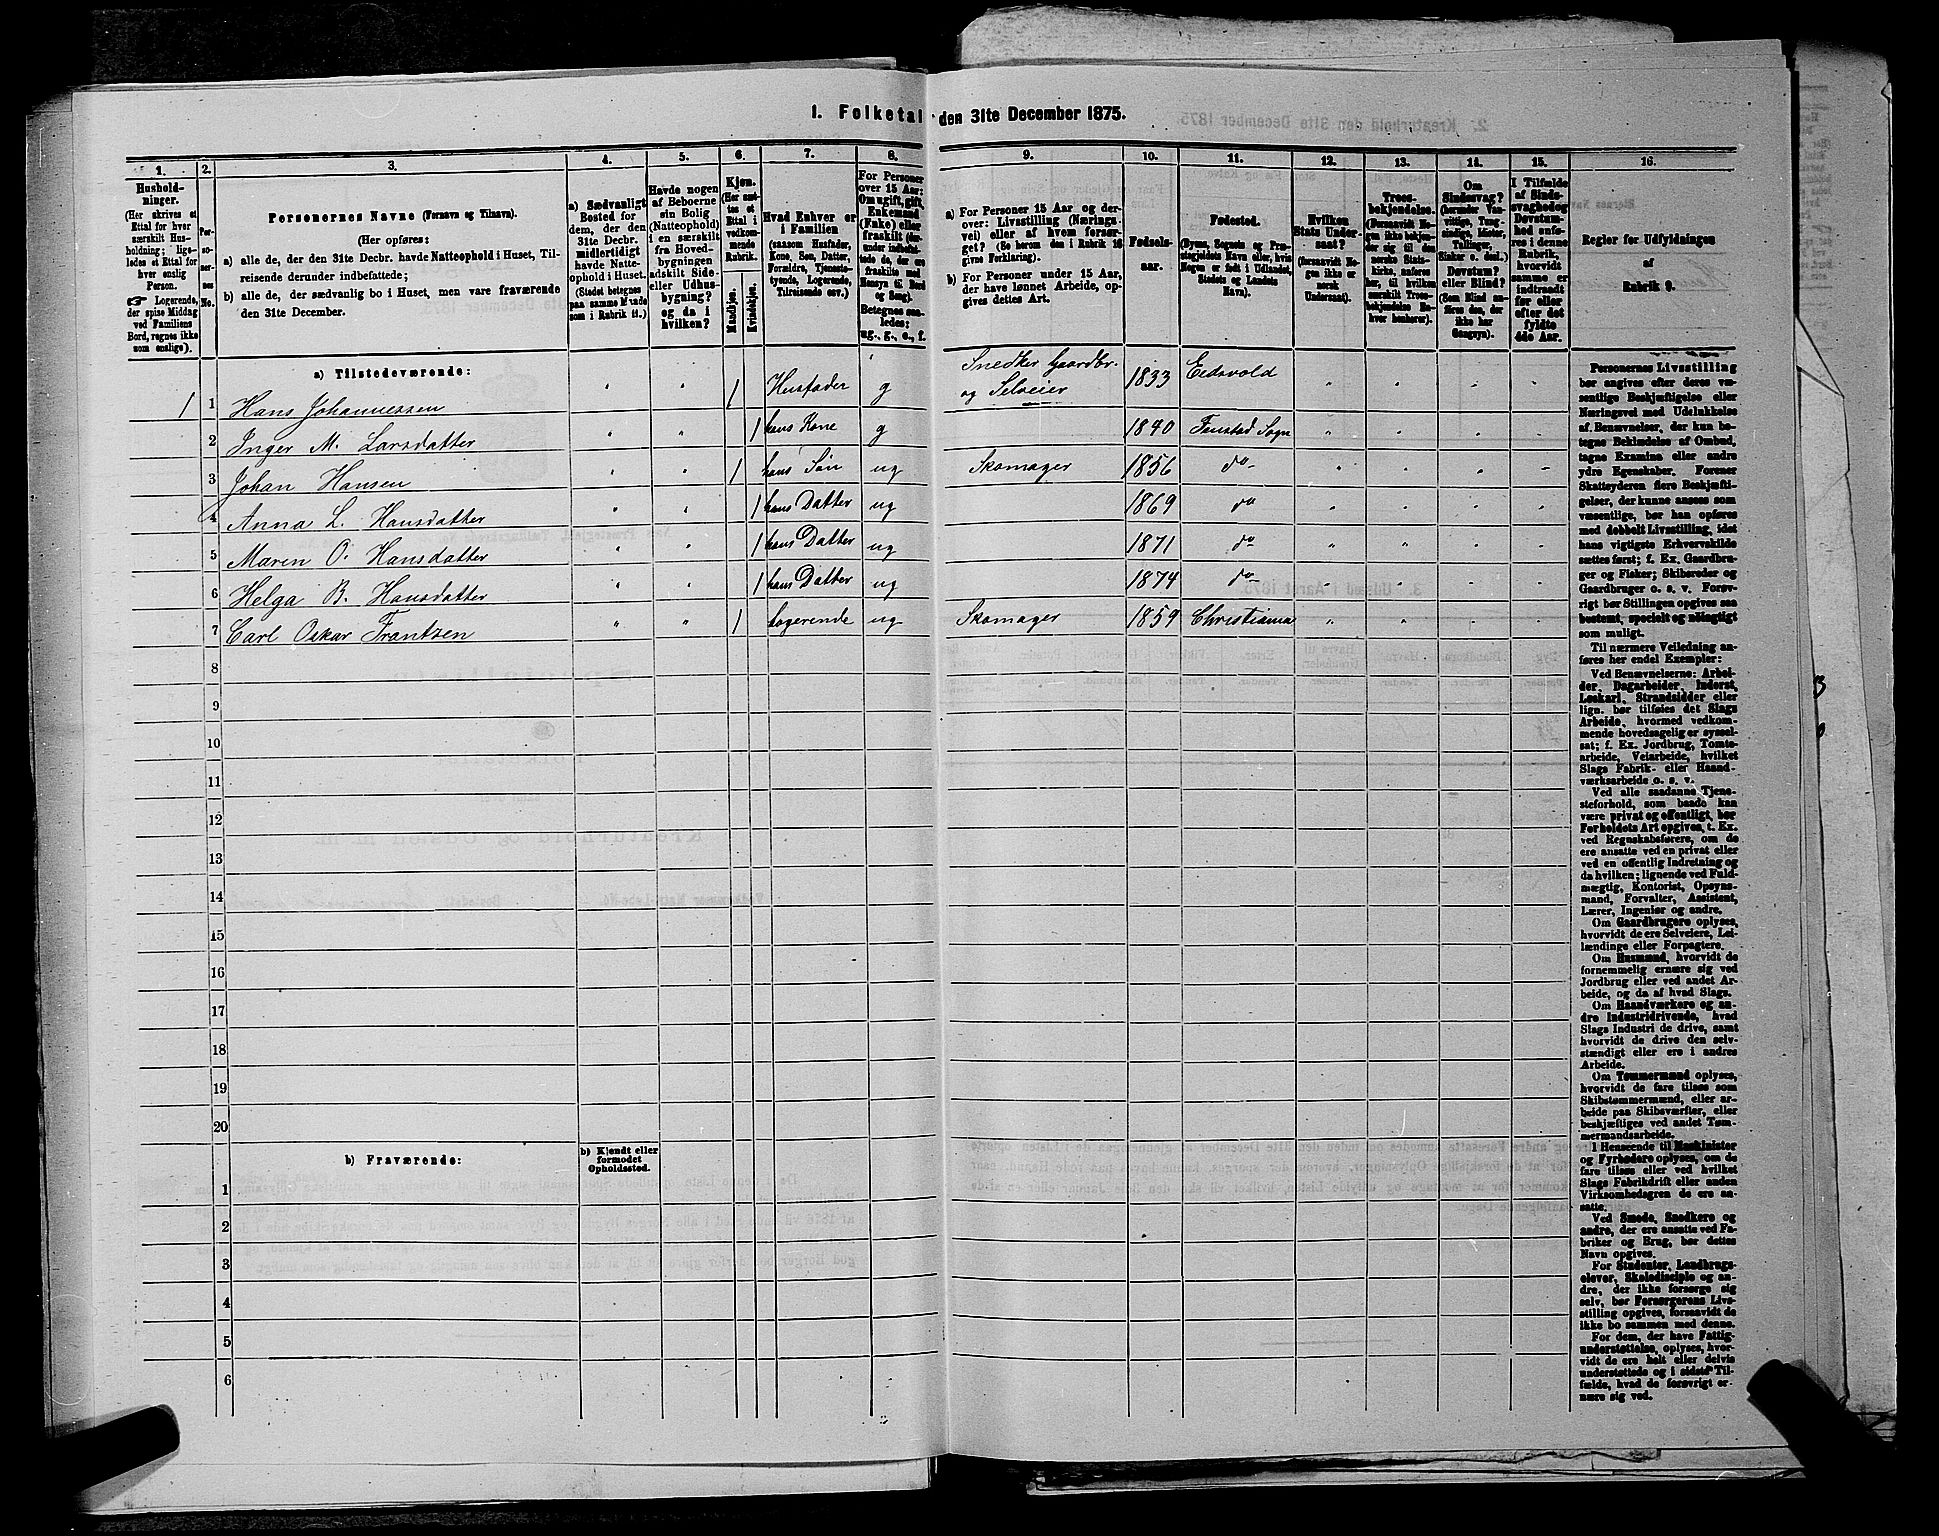 1. Folketal den 31te December 1875.
1. 2. 3. 4. 5. 6. 7. 8. 9. 10. 11. 12. 13. 14. 15. 16.
Hushold-
ninger.
(Her skrives et
Ettal for hver
særskilt Hus-
holdning; lige-
ledes et Ettal for
hver enslig
Person.
☞ Logerende,
der spise Middag
ved Familiens
Bord, regnes ikke
som enslige).
Per-
so-
ner-
nes
No.
Personernes Navne (Fornavn og Tilnavn).
(Her opføres:
a) alle de, der den 31te Decbr. havde Natteophold i Huset, Til-
reisende derunder indbefattede;
b) alle de, der sædvanlig bo i Huset, men vare fraværende
den 31te December.
a) Sædvanligt
Bosted for
dem, der den
31te Decbr.
midlertidigt
havde Natte-
ophold i Huset.
(Stedet betegnes
paa samme Maade
som i Rubrik 11.)
Havde nogen
af Beboerne
sin Bolig
(Natteophold)
i en særskilt
fra Hoved-
bygningen
adskilt Side-
eller Udhus-
bygning?
og da i
hvilken?
Kjøn.
(Her sæt-
tes et
Ettal i
vedkom-
mende
Rubrik.
Mandkjøn.
Kvindekjøn.
Hvad Enhver er
i Familien
(saasom Husfader,
Kone, Søn, Datter,
Forældre, Tjeneste-
tyende, Logerende,
Tilreisende osv.)
For Personer
over 15 Aar:
Om ugift, gift,
Enkemand
(Enke) eller
fraskilt (der-
under indbefat-
tede de, der ere
fraskilte med
Hensyn til Bord
og Seng).
Betegnes saa-
ledes:
ug., g., e., f.
a) For Personer 15 Aar og der-
over: Livsstilling (Nærings-
vei) eller af hvem forsør-
get? (Se herom den i Rubrik 16
givne Forklaring).
b) For Personer under 15 Aar,
der have lønnet Arbeide, op-
gives dettes Art.
Fødsels-
aar.
Fødested.
(Byens, Sognets og Præ-
stegjeldets Navn eller, hvis
Nogen er født i Udlandet,
Stedets og Landets
Navn).
Hvilken
Stats Under-
saat?
(forsaavidt No-
gen ikke er
norsk
Undersaat).
Troes-
bekjendelse.
(Forsaavidt No-
gen ikke bekjen-
der sig til den
norske Stats-
kirke, anføres
her, til hvilken
særskilt Troes-
bekjendelse En-
hver henhører).
Om
Sindssvag?
(herunder Van-
vittige, Tung-
sindige, Idioter,
Tullinger,
Sinker o. desl.)
Døvstum?
eller Blind?
(Som Blind an-
føres den, der
ikke har
Gangsyn).
I Tilfælde
af Sinds-
svaghed og
Døvstum-
hed anfø-
res i denne
Rubrik,
hvorvidt
samme er
indtraadt
før eller
efter det
fyldte
4de Aar.
Regler for Udfyldningen
af
Rubrik 9.
a) Tilstedeværende:
1 1 Hans Johannessen " " 1 Husfader g Snedker Gaardbr. og Selveier 1833 Eidsvold " " " "
2 Inger M. Larsdatter " " 1 hans Kone g 1840 Fenstad Sogn " " " "
3 Johan Hansen " " 1 hans Søn ug Skomager 1856 do " " " "
4 Anna L. Hansdatter " " 1 hans Datter ug 1869 do " " " "
5 Maren O. Hansdatter " " 1 hans Datter ug 1871 do " " " "
6 Helga B. Hansdatter " " 1 hans Datter ug 1874 do " " " "
7 Carl Oskar Frantzen " " 1 Logerende ug Skomager 1859 Christiania " " " "
8
9
10
11
12
13
14
15
16
17
18
19
20
b) Fraværende:
b) Kjendt eller
formodet
Opholdssted.
1
2
3
4
5
6
Personernes Livsstilling
bør angives efter deres væ-
sentlige Beskjæftigelse eller
Næringsvei med Udelukkelse
af Benævnelser, der kun be-
tegne Beklædelse af Ombud,
tagne Examina eller andre
ydre Egenskaber. Forener
Skatteyderen flere Beskjæfti-
gelser, der kunne ansees som
væsentlige, bør han opføres
med dobbelt Livsstilling, idet
hans vigtigste Erhvervskilde
sættes først; f. Ex. Gaardbru-
ger og Fisker; Skibsreder og
Gaardbruger o. s. v. Forøv-
rigt bør Stillingen opgives saa
bestemt, specielt og nøiagtigt
som muligt.
Til nærmere Veiledning an-
føres her endel Exempler:
Ved Benævnelserne: Arbei-
der, Dagarbeider, Inderst,
Løskarl, Strandsidder eller
lign. bør tilføies det Slags
Arbeide, hvormed vedkom-
mende hovedsagelig er syssel-
sat; f. Ex. Jordbrug, Tomte-
arbeide, Veiarbeide, hvilket
Slags Fabrik- eller Haand-
værksarbeide o. s. v.
Ved alle saadanne Tjene-
steforhold, som baade kan
være privat og offentligt, bør
Forholdets Art opgives, t. Ex.
ved Regnskabsførere, om de
ere ansatte ved en privat eller
ved en offentlig Indretning og
da hvilken; lignende ved Fuld-
mægtig, Kontorist, Opsyns-
mand, Forvalter, Assistent,
Lærer, Ingeniør og andre.
Om Gaardbrugere oplyses,
hvorvidt de ere Selveiere, Lei-
lændinge eller Forpagtere.
Om Husmænd, hvorvidt de
fornemmelig ernære sig ved
Jordbrug eller ved andet Ar-
beide, og da af hvad Slags.
Om Haandværkere og an-
dre Industridrivende, hvad
Slags Industri de drive, samt
hvorvidt de drive den selv-
stændigt eller ere i andres
Arbeide.
Om Tømmermænd oplyses,
hvorvidt de fare tilsøs som
Skibstømmermænd, eller ar-
beide paa Skibsværfter, eller
beskjæftiges ved andet Tøm-
mermandsarbeide.
I Henseende til Maskinister
og Fyrbødere oplyses, om de
fare tilsøs eller ved hvilket
Slags Fabrikdrift eller anden
Virksomhedsgren de ere an-
satte.
Ved Smede, Snedkere og
andre, der ere ansatte ved Fa-
briker og Brug, bør dettes
Navn opgives.
For Studenter, Landbrugs-
elever, Skoledisciple og an-
dre, der ikke forsørge sig
selv, bør Forsørgerens Livs-
stilling opgives, forsaavidt de
ikke bo sammen med denne.
For dem, der have Fattig-
understøttelse, oplyses, hvor-
vidt de ere helt eller delvis
understøttede og i sidste Til-
fælde, hvad de forøvrigt er-
nære sig ved.